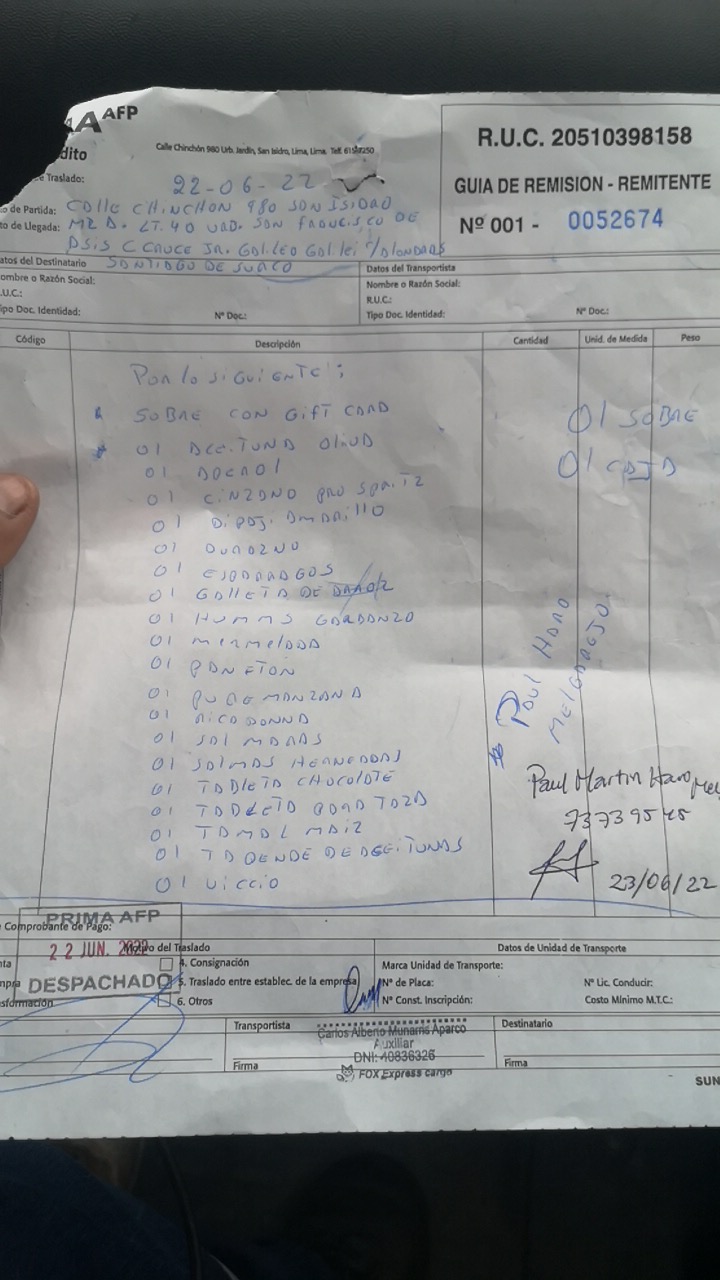 AFP
R.U.C. 20510398158
Calle Chinchón 980 Urb. Jardín, San Isidro, Lima, Lima.
Traslado: 22-06-22
GUIA DE REMISION - REMITENTE
de Partida: CALLE CHINCHON 980 SAN ISIDRO
Nº 001 - 0052674
de Llegada: MZ D. LT. 40 URB. SAN FRANCISCO DE
ASIS C CRUCE JR. GALILEO GALILEI
SANTIAGO DE SURCO
atos del Destinatario
Datos del Transportista
ombre o Razón Social:
Nombre o Razón Social:
.U.C.:
R.U.C.:
ipo Doc. Identidad:
Nº Doc.:
Tipo Doc. Identidad:
Nº Doc.:
Código
Descripción
Cantidad
Unid. de Medida
Peso
POR LO SIGUIENTE:
SOBRE CON GIFT CARD
01 SOBRE
01 ACEITUNA
01 CAJA
01
01 CINZANO PRO SPRITZ
01 AMARILLO
01 DURAZNO
01 ESPARRAGOS
01 GALLETA DE ARROZ
01 HUMMS GARBANZO
01 MERMELADA
01 PANETON
01 PURE MANZANA
01 RICADONNA
01 SAL MARAS
01 SALMAS HORNEADAS
01 TABLETA CHOCOLATE
01 TABLETA PARA TAZA
01 TAMAL MAIZ
01 DE ACEITUNAS
01 VICCIO
PAUL HARO
MELGAREJO
Paul Martin Haro
23/06/22
PRIMA AFP
22 JUN. 2022
DESPACHADO
Comprobante de Pago:
Motivo del Traslado
Datos de Unidad de Transporte
4. Consignación
5. Traslado entre establec. de la empresa
6. Otros
Marca Unidad de Transporte:
Nº de Placa:
Nº Lic. Conducir:
Nº Const. Inscripción:
Costo Mínimo M.T.C.:
Transportista
Carlos Alberto Munarris Aparco
Auxiliar
DNI: 40836326
FOX Express cargo
Destinatario
Firma
Firma
SUN